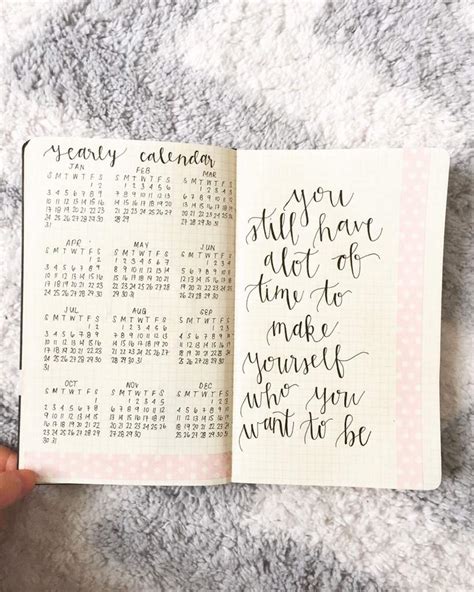 yearly calendar
JAN
S M T W T F S
1 2
3 4 5 6 7 8 9
10 11 12 13 14 15 16
17 18 19 20 21 22 23
24 25 26 27 28 29 30
31
FEB
S M T W T F S
1 2 3 4 5 6
7 8 9 10 11 12 13
14 15 16 17 18 19 20
21 22 23 24 25 26 27
28 29
MAR
S M T W T F S
1 2 3 4 5
6 7 8 9 10 11 12
13 14 15 16 17 18 19
20 21 22 23 24 25 26
27 28 29 30 31
APR
S M T W T F S
1 2
3 4 5 6 7 8 9
10 11 12 13 14 15 16
17 18 19 20 21 22 23
24 25 26 27 28 29 30
MAY
S M T W T F S
1 2 3 4 5 6 7
8 9 10 11 12 13 14
15 16 17 18 19 20 21
22 23 24 25 26 27 28
29 30 31
JUN
S M T W T F S
1 2 3 4
5 6 7 8 9 10 11
12 13 14 15 16 17 18
19 20 21 22 23 24 25
26 27 28 29 30
JUL
S M T W T F S
1 2
3 4 5 6 7 8 9
10 11 12 13 14 15 16
17 18 19 20 21 22 23
24 25 26 27 28 29 30
31
AUG
S M T W T F S
1 2 3 4 5 6
7 8 9 10 11 12 13
14 15 16 17 18 19 20
21 22 23 24 25 26 27
28 29 30 31
SEP
S M T W T F S
1 2 3
4 5 6 7 8 9 10
11 12 13 14 15 16 17
18 19 20 21 22 23 24
25 26 27 28 29 30
OCT
S M T W T F S
1
2 3 4 5 6 7 8
9 10 11 12 13 14 15
16 17 18 19 20 21 22
23 24 25 26 27 28 29
30 31
NOV
S M T W T F S
1 2 3 4 5
6 7 8 9 10 11 12
13 14 15 16 17 18 19
20 21 22 23 24 25 26
27 28 29 30
DEC
S M T W T F S
1 2 3
4 5 6 7 8 9 10
11 12 13 14 15 16 17
18 19 20 21 22 23 24
25 26 27 28 29 30 31
you
still have
alot of
time to
make
yourself
who you
want to be